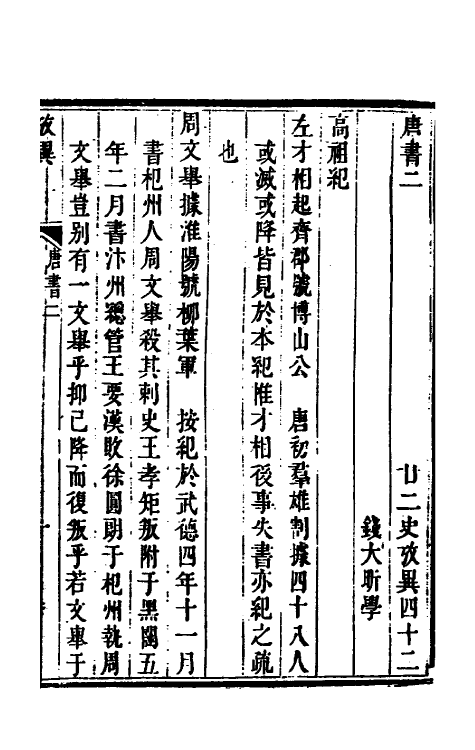 唐書二　廿二史攷異四十二
錢大昕學
高祖紀
左才相起齊郡號博山公　唐初羣雄割據四十八人
或滅或降皆見於本紀惟才相後事失書亦紀之疏
也
周文舉據淮陽號柳葉軍　按紀於武德四年十一月
書杞州人周文舉殺其刺史王孝矩叛附于黑闥五
年二月書汴州總管王要漢敗徐圓朗于杞州執周
文舉豈别有一文舉乎抑已降而復叛乎若文舉于
攷異　唐書二　一